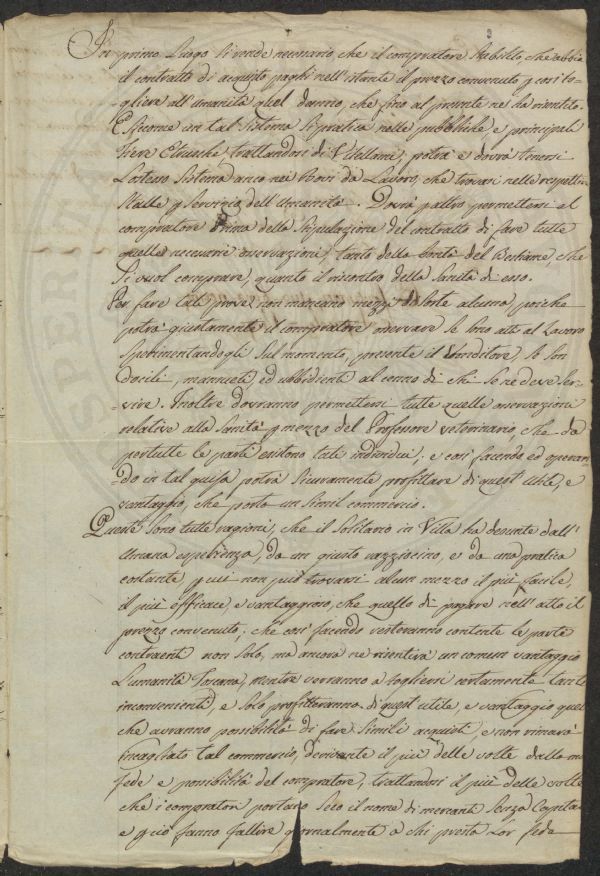 In primo Luogo si rende necessario che il compratore stabilito che abbia
il contratto di acquisto paghi nell'istante il prezzo convenuto p così to-
gliere all'Umanità quel danno, che fino al presente ne ha risentito.
E siccome un tal sistema si pratica nelle pubbliche e principali
Fiere Etrusche trattandosi di Vitellame, potrà e dovrà tenersi
Lo stesso sistema anco nei Bovi da Lavoro, che trovasi nelle respettive
Stalle p servizio dell'Umanità. Dovrà p altro permettersi al
compratore Prima della Stipulazione del contratto di fare tutte
quelle necessarie osservazioni, tanto della bontà del Bestiame, che
si vuol comprare, quanto il riscontro della Sanità di esso.
Per fare tali prove non mancano mezzi di sorte alcuna, poiche
potrà giustamente il compratore osservare se sono atti al Lavoro
sperimentandogli sul momento, presente il Venditore, se son
docili, mansueti, ed ubbidienti al cenno di chi se ne deve ser-
-vire. Inoltre dovranno permettersi tutte quelle osservazioni
relative alla Sanità p mezzo del Professore veterinario, che da
per tutte le parti esistono tali individui, e così facendo ed operan-
-do in tal guisa potrà sicuramente profittare di quest'utile, e
vantaggio, che porta un simil commercio.
Queste sono tutte ragioni, che il Solitario in Villa ha desunte dall'
Umana esperienza, da un giusto razziocino, e da una pratica
costante p cui non può trovarsi alcun mezzo il più facile,
il più efficace, e vantaggioso, che quello di pagare nell'atto il
prezzo convenuto; che così facendo resteranno contente le parti
contraenti non solo, ma ancora ne risentirà un comun vantaggio
L'umanità Toscana, mentre verranno a togliersi certamente tanti
inconvenienti, e solo profitteranno di quest'utile, e vantaggio quei
che avranno possibilità di fare simili acquisti, e non rimarrà
incagliato tal commercio, derivante il più delle volte dalla ma
fede e possibilità del compratore, trattandosi il più delle volte
che i compratori portano seco il nome di mercanti senza Capita
e p ciò fanno fallire giornalmente a chi presta Lor fede